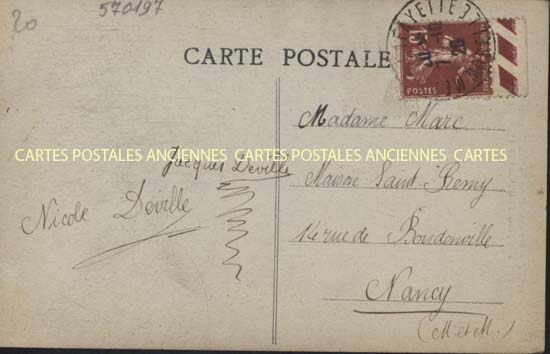 20
570197
CARTE POSTALE
15
POSTES
Madame Marc
CARTES POSTALES ANCIENNES CARTES POSTALES ANCIENNES CARTES
Jacques Deville
Maison Saint Remy
Nicole Deville
14 rue de Boudonville
Nancy
(M. et M.)